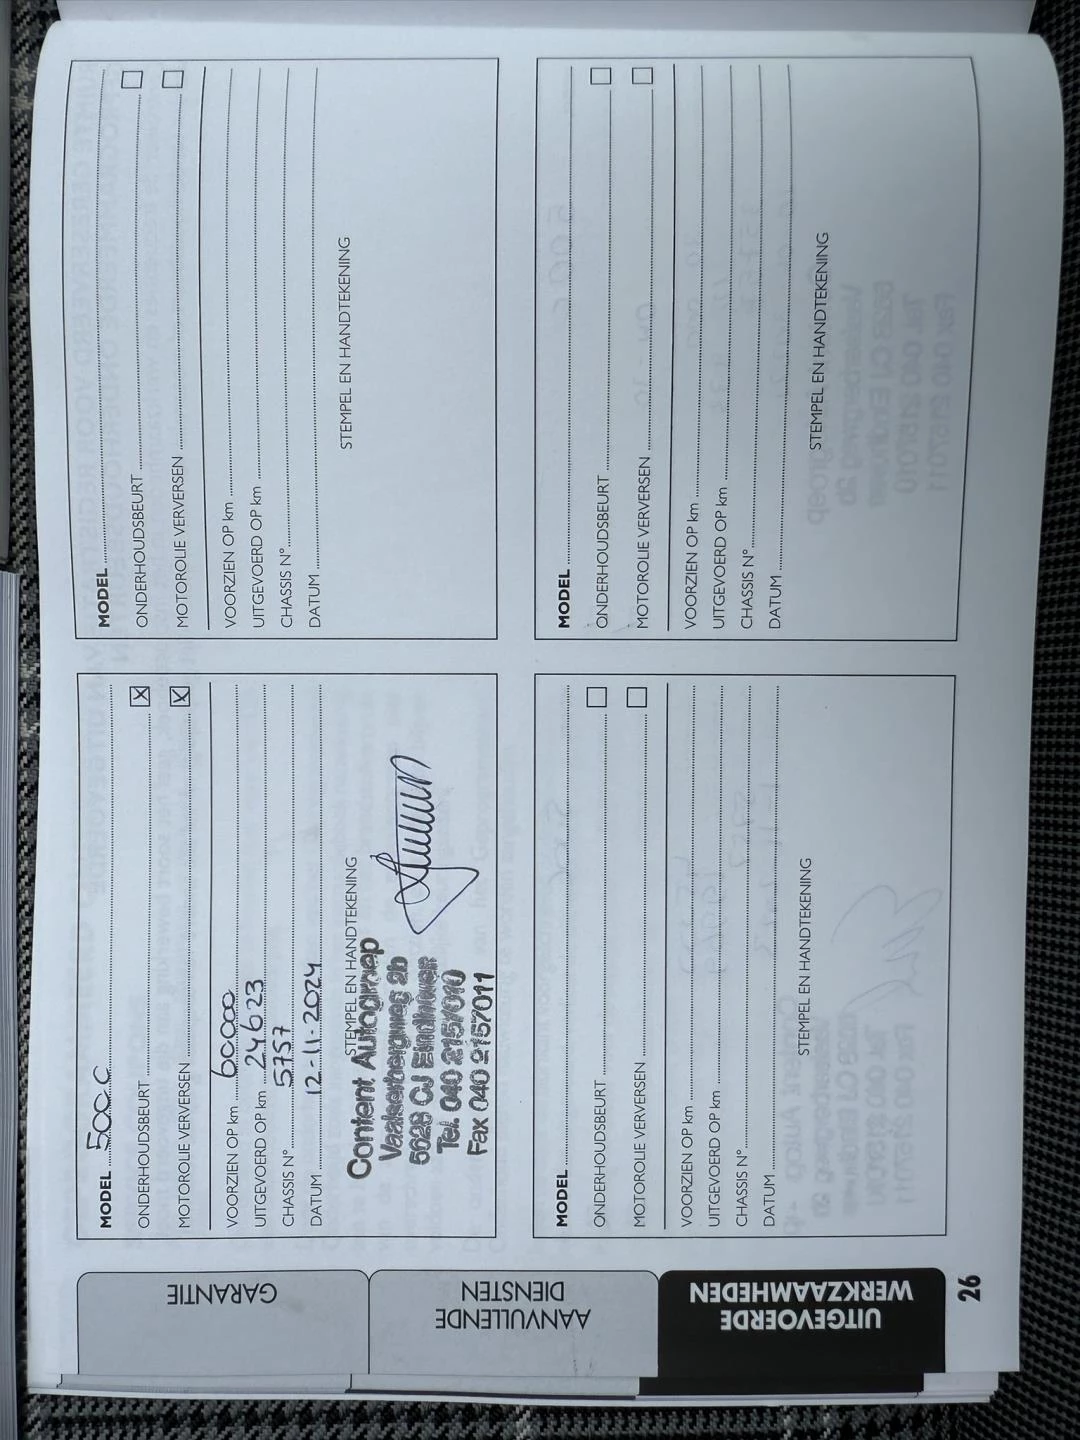 MODEL 500 C
ONDERHOUDSBEURT X
MOTOROLIE VERVERSEN X
VOORZIEN OP km 60000
UITGEVOERD OP km 24623
CHASSIS N° 5757
DATUM 12-11-2024
STEMPEL EN HANDTEKENING
Content Autogroep
Vaalserbergweg 2b
5628 CJ Eindhoven
Tel. 040 2157010
Fax 040 2157011
MODEL
ONDERHOUDSBEURT
MOTOROLIE VERVERSEN
VOORZIEN OP km
UITGEVOERD OP km
CHASSIS N°
DATUM
STEMPEL EN HANDTEKENING
MODEL
ONDERHOUDSBEURT
MOTOROLIE VERVERSEN
VOORZIEN OP km
UITGEVOERD OP km
CHASSIS N°
DATUM
STEMPEL EN HANDTEKENING
MODEL
ONDERHOUDSBEURT
MOTOROLIE VERVERSEN
VOORZIEN OP km
UITGEVOERD OP km
CHASSIS N°
DATUM
STEMPEL EN HANDTEKENING
GARANTIE
AANVULLENDE
DIENSTEN
UITGEVOERDE
WERKZAAMHEDEN
26